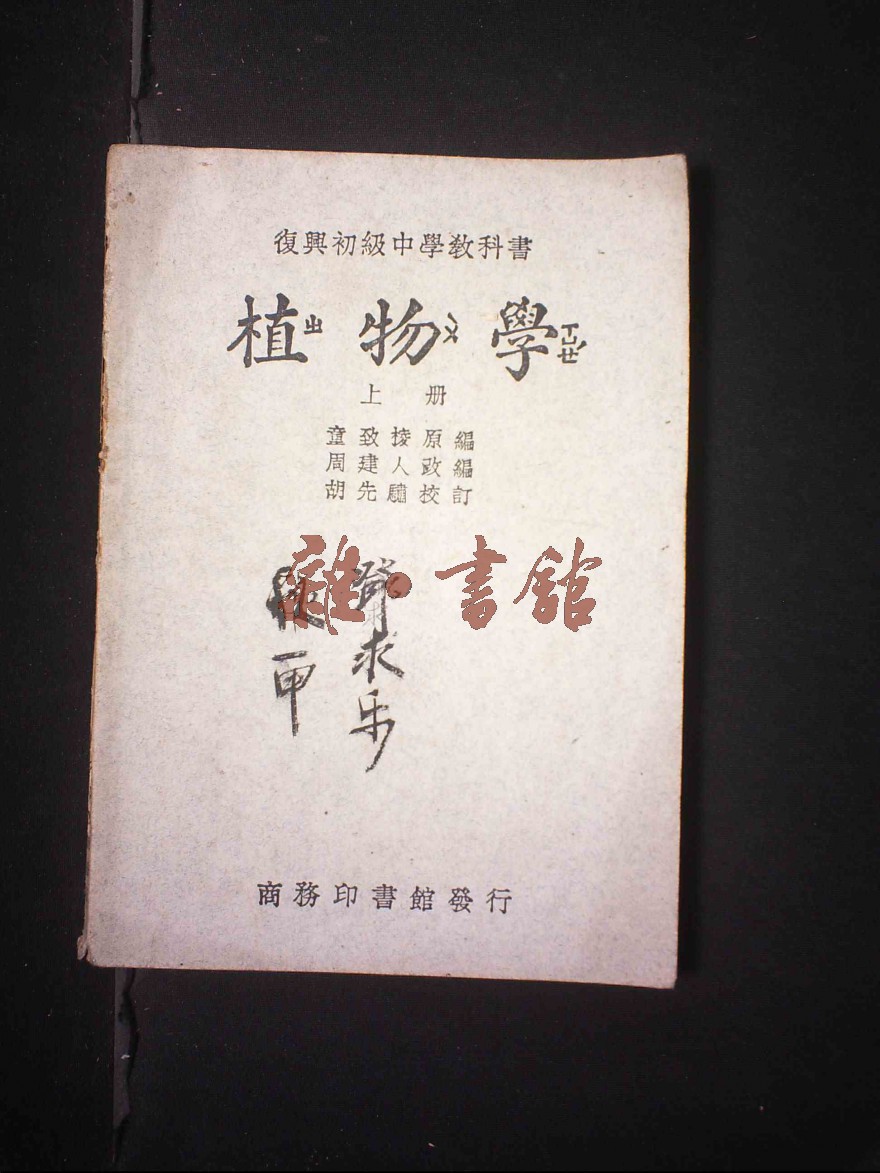 復興初級中學教科書
植物學
ㄓ ㄨ ㄒㄩㄝˊ
上册
童致棱原編
周建人改編
胡先驌校訂
雜·書館
鄧求乐
一甲
商務印書館發行